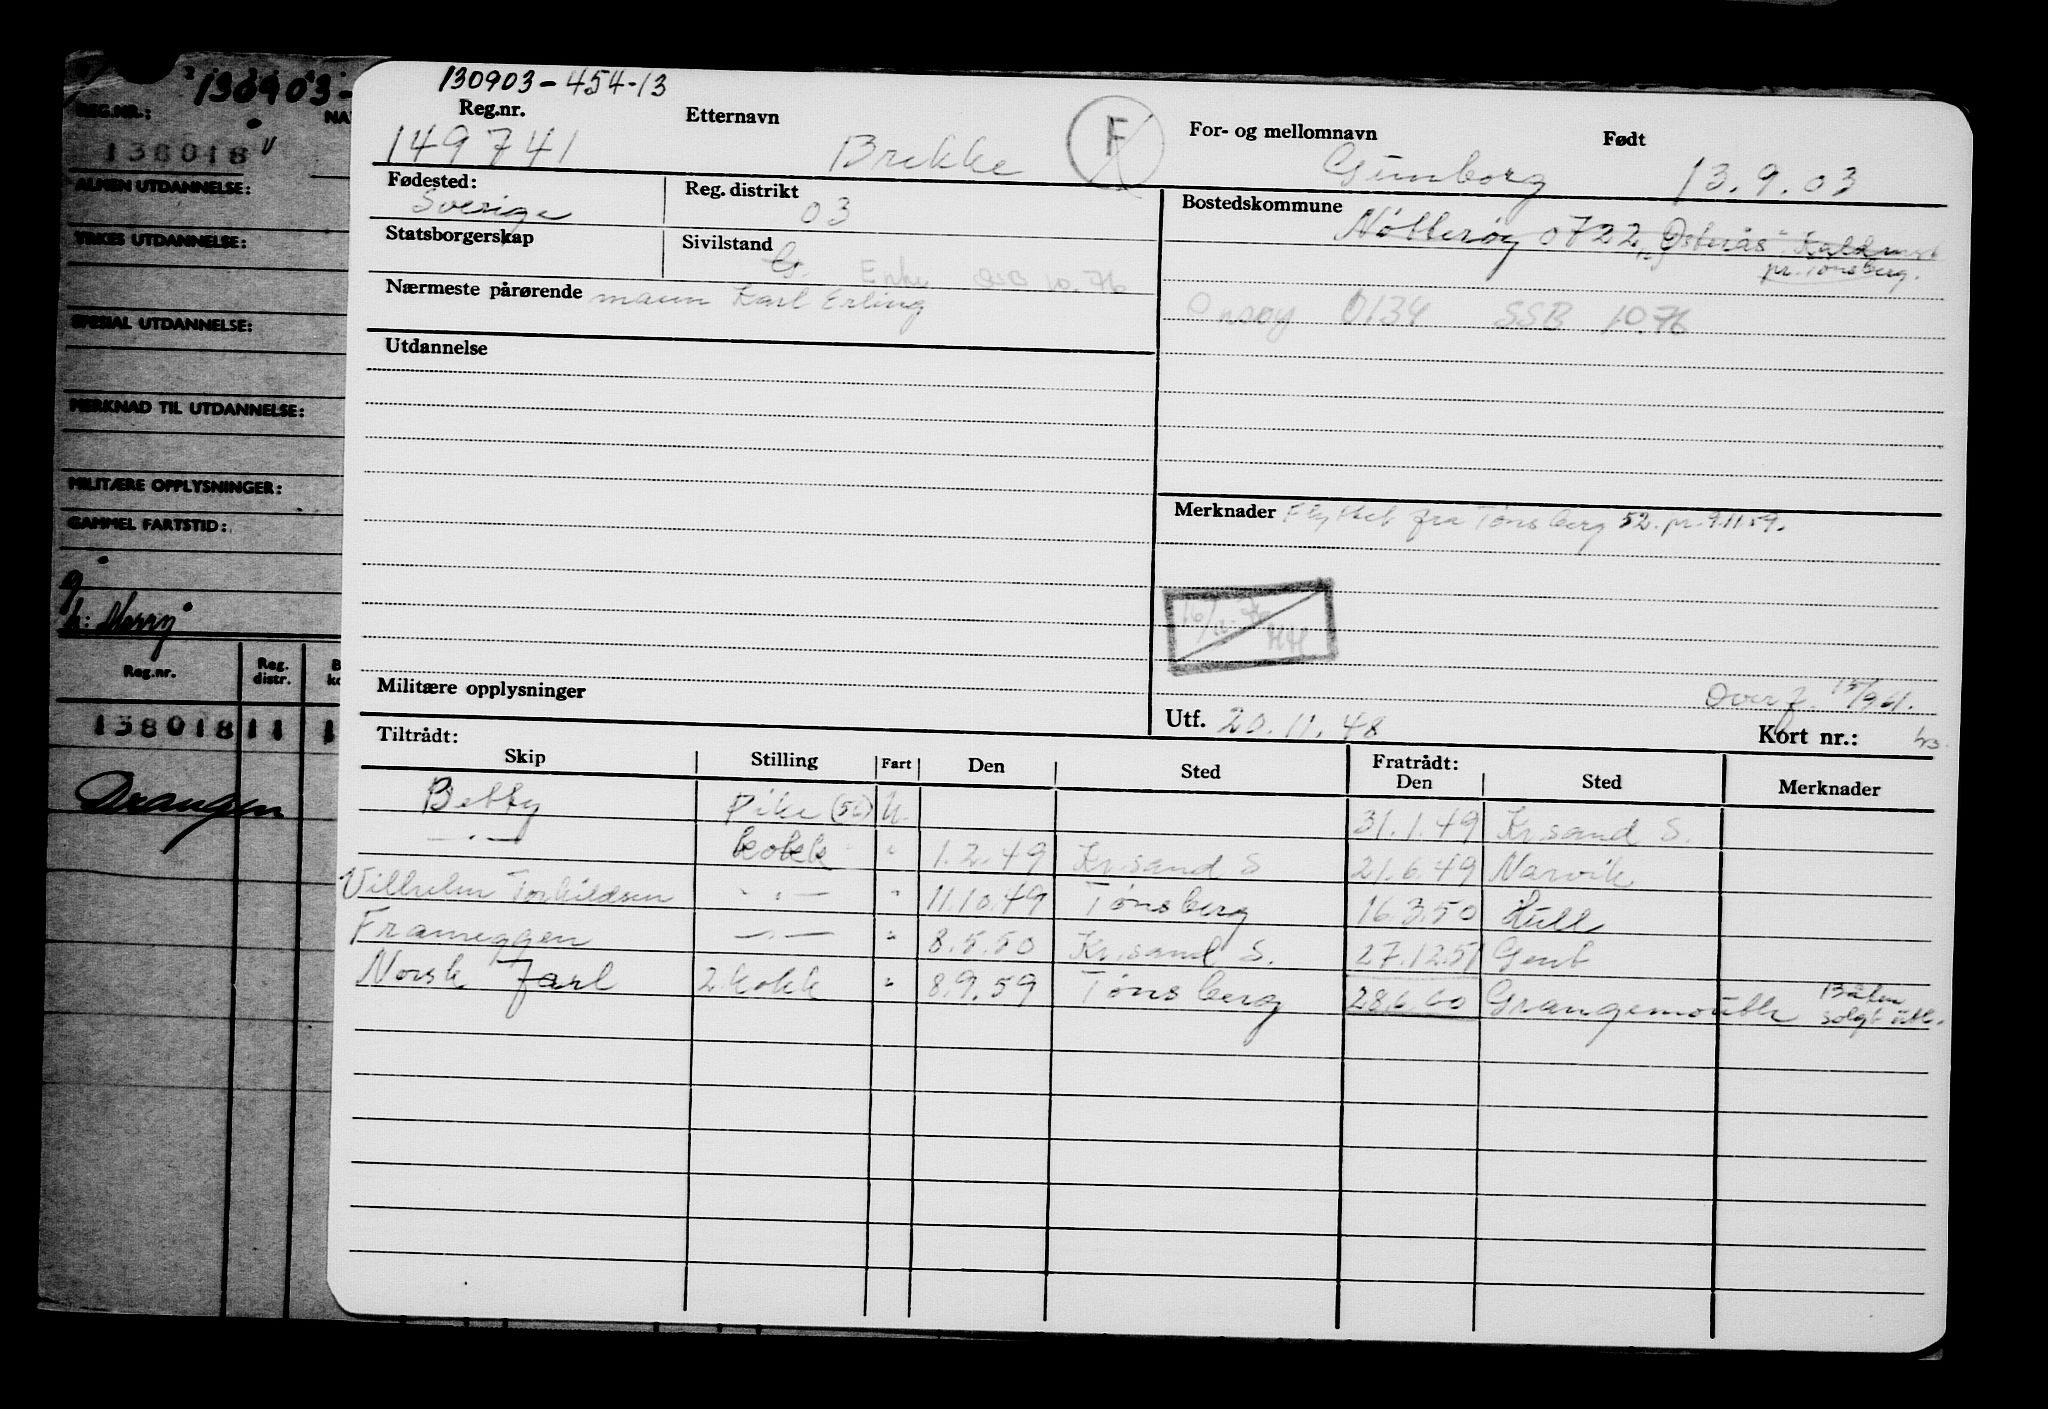 130903-
REG.NR.:
NA
138018
ALMEN UTDANNELSE:
YRKES UTDANNELSE:
SPESIAL UTDANNELSE:
MERKNAD TIL UTDANNELSE:
MILITÆRE OPPLYSNINGER:
GAMMEL FARTSTID:
Reg.nr. Reg. distr. B
138018 11 1
130903-454-13
Reg.nr. Etternavn F For- og mellomnavn Født
149741 Brekke Gunborg 13.9.03
Fødested: Sverige Reg. distrikt 03 Bostedskommune
Nøtterøy 0722 "Østerås"
pr. Tønsberg.
Statsborgerskap Sivilstand G. Enke SSB 10.76
Nærmeste pårørende mann Karl Erling
Onsøy 0134 SSB 10.76
Utdannelse
Merknader Flyttet fra Tønsberg 52. pr. 9.11.59.
HH
Overf. 15/9 61.
Militære opplysninger
Utf. 20.11.48 Kort nr.:
Tiltrådt: Fratrådt:
Skip Stilling Fart Den Sted Den Sted Merknader
Betty Pike (50) U. 31.1.49 Kr.sand S.
— " — kokk " 1.2.49 Kr.sand S 21.6.49 Narvik
Vilhelm Torkildsen — " — " 11.10.49 Tønsberg 16.3.50 Hull
Frameggen — " — " 8.5.50 Kr.sand S. 27.12.51 Gent
Norsk Jarl 2.kokk " 8.9.59 Tønsberg 28.6.60 Grangemouth Båten
solgt utl.